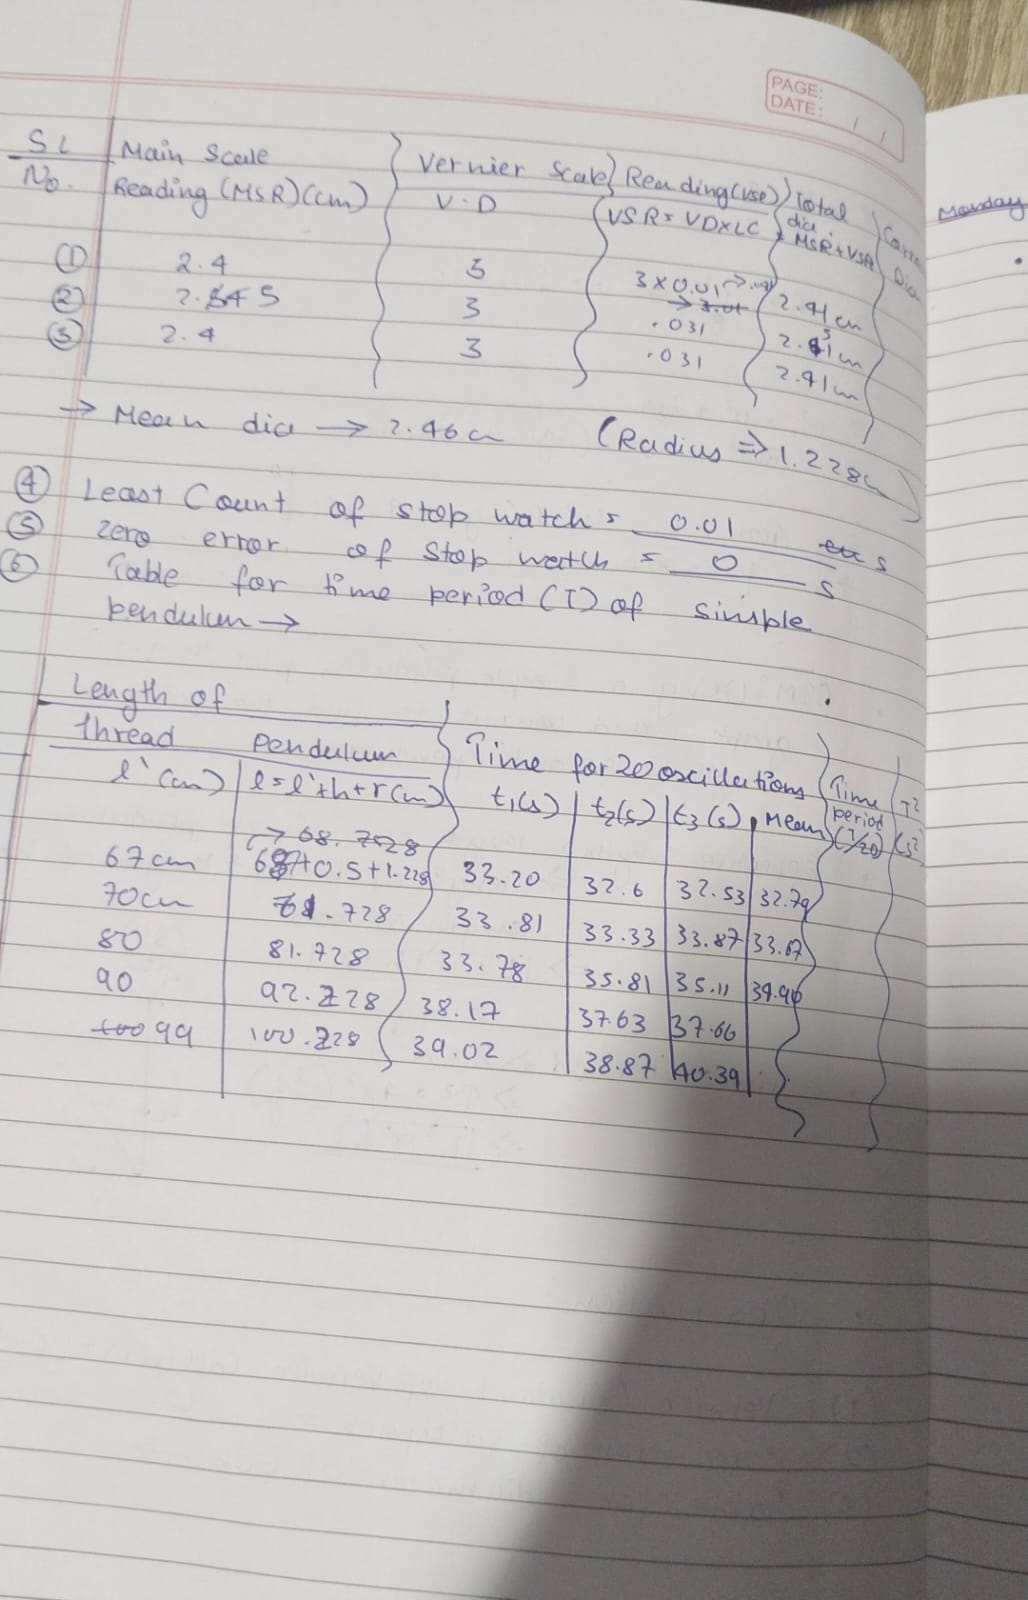 PAGE:
DATE: / /
Monday
SL No. Main Scale Reading (MSR) (cm) Vernier Scale Reading (VSR) Total dia
V.D VSR = VD×LC MSR+VSR Dia
① 2.4 3 3 × 0.01 2.41 cm
② 2.5 3 .031 cm
③ 2.4 3 .031 2.41 cm
→ Mean dia → 2.46 c (Radius ⇒ 1.228c)
④ Least Count of stop watch = 0.01 s
⑤ Zero error of stop watch = 0 s
⑥ Table for time period (T) of simple
pendulum →
Length of
thread pendulum Time for 20 oscillations Time period (T/20) T² (s²
l' (cm) l = l'+h+r (cm) t₁(s) t₂(s) t₃(s) Mean
→ 68.728
67cm +0.5+1.228 33.20 32.6 32.53 32.79
70cm .728 33.81 33.33 33.87 33.67
80 81.728 33.78 35.81 35.11
90 92.228 38.17 37.63 37.66
99 100.228 39.02 38.87 40.39